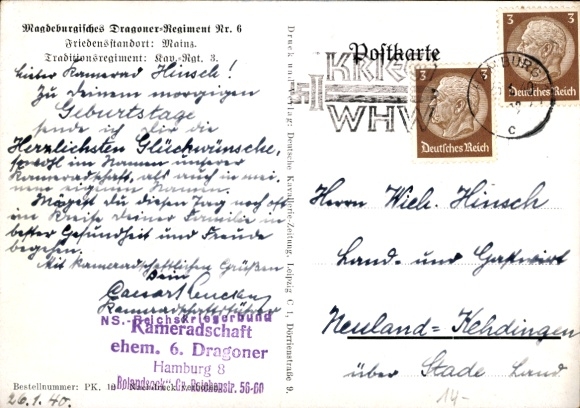 Magdeburgisches Dragoner-Regiment Nr. 6
Friedensstandort: Mainz.
Traditionsregiment: Kav.-Rgt. 3.
Lieber Kamerad Hinsch!
Zu Deinem morgigen
Geburtstage
sende ich Dir die
Herzlichsten Glückwünsche,
sowohl im Namen unserer
Kameradschaft, als auch in mei-
nem eigenen Namen.
Mögest Du diesen Tag noch oft
im Kreise Deiner Familie in
bester Gesundheit und Freude
begehen.
Mit kameradschaftlichen Grüßen
Dein
Kameradschaftsführer
NS.-Reichskriegerbund
Kameradschaft
ehem. 6. Dragoner
Hamburg 8
Bestellnummer: PK. 10
26.1.40.
Druck und Verlag: Deutsche Kavallerie-Zeitung, Leipzig C 1, Dörrienstraße 9.
Postkarte
KRIEGS
WHW
3
Deutsches Reich
3
Deutsches Reich
c
Herrn Wich. Hinsch
Land- und Gastwirt
Neuland=Kehdingen
über Stade Land
14-